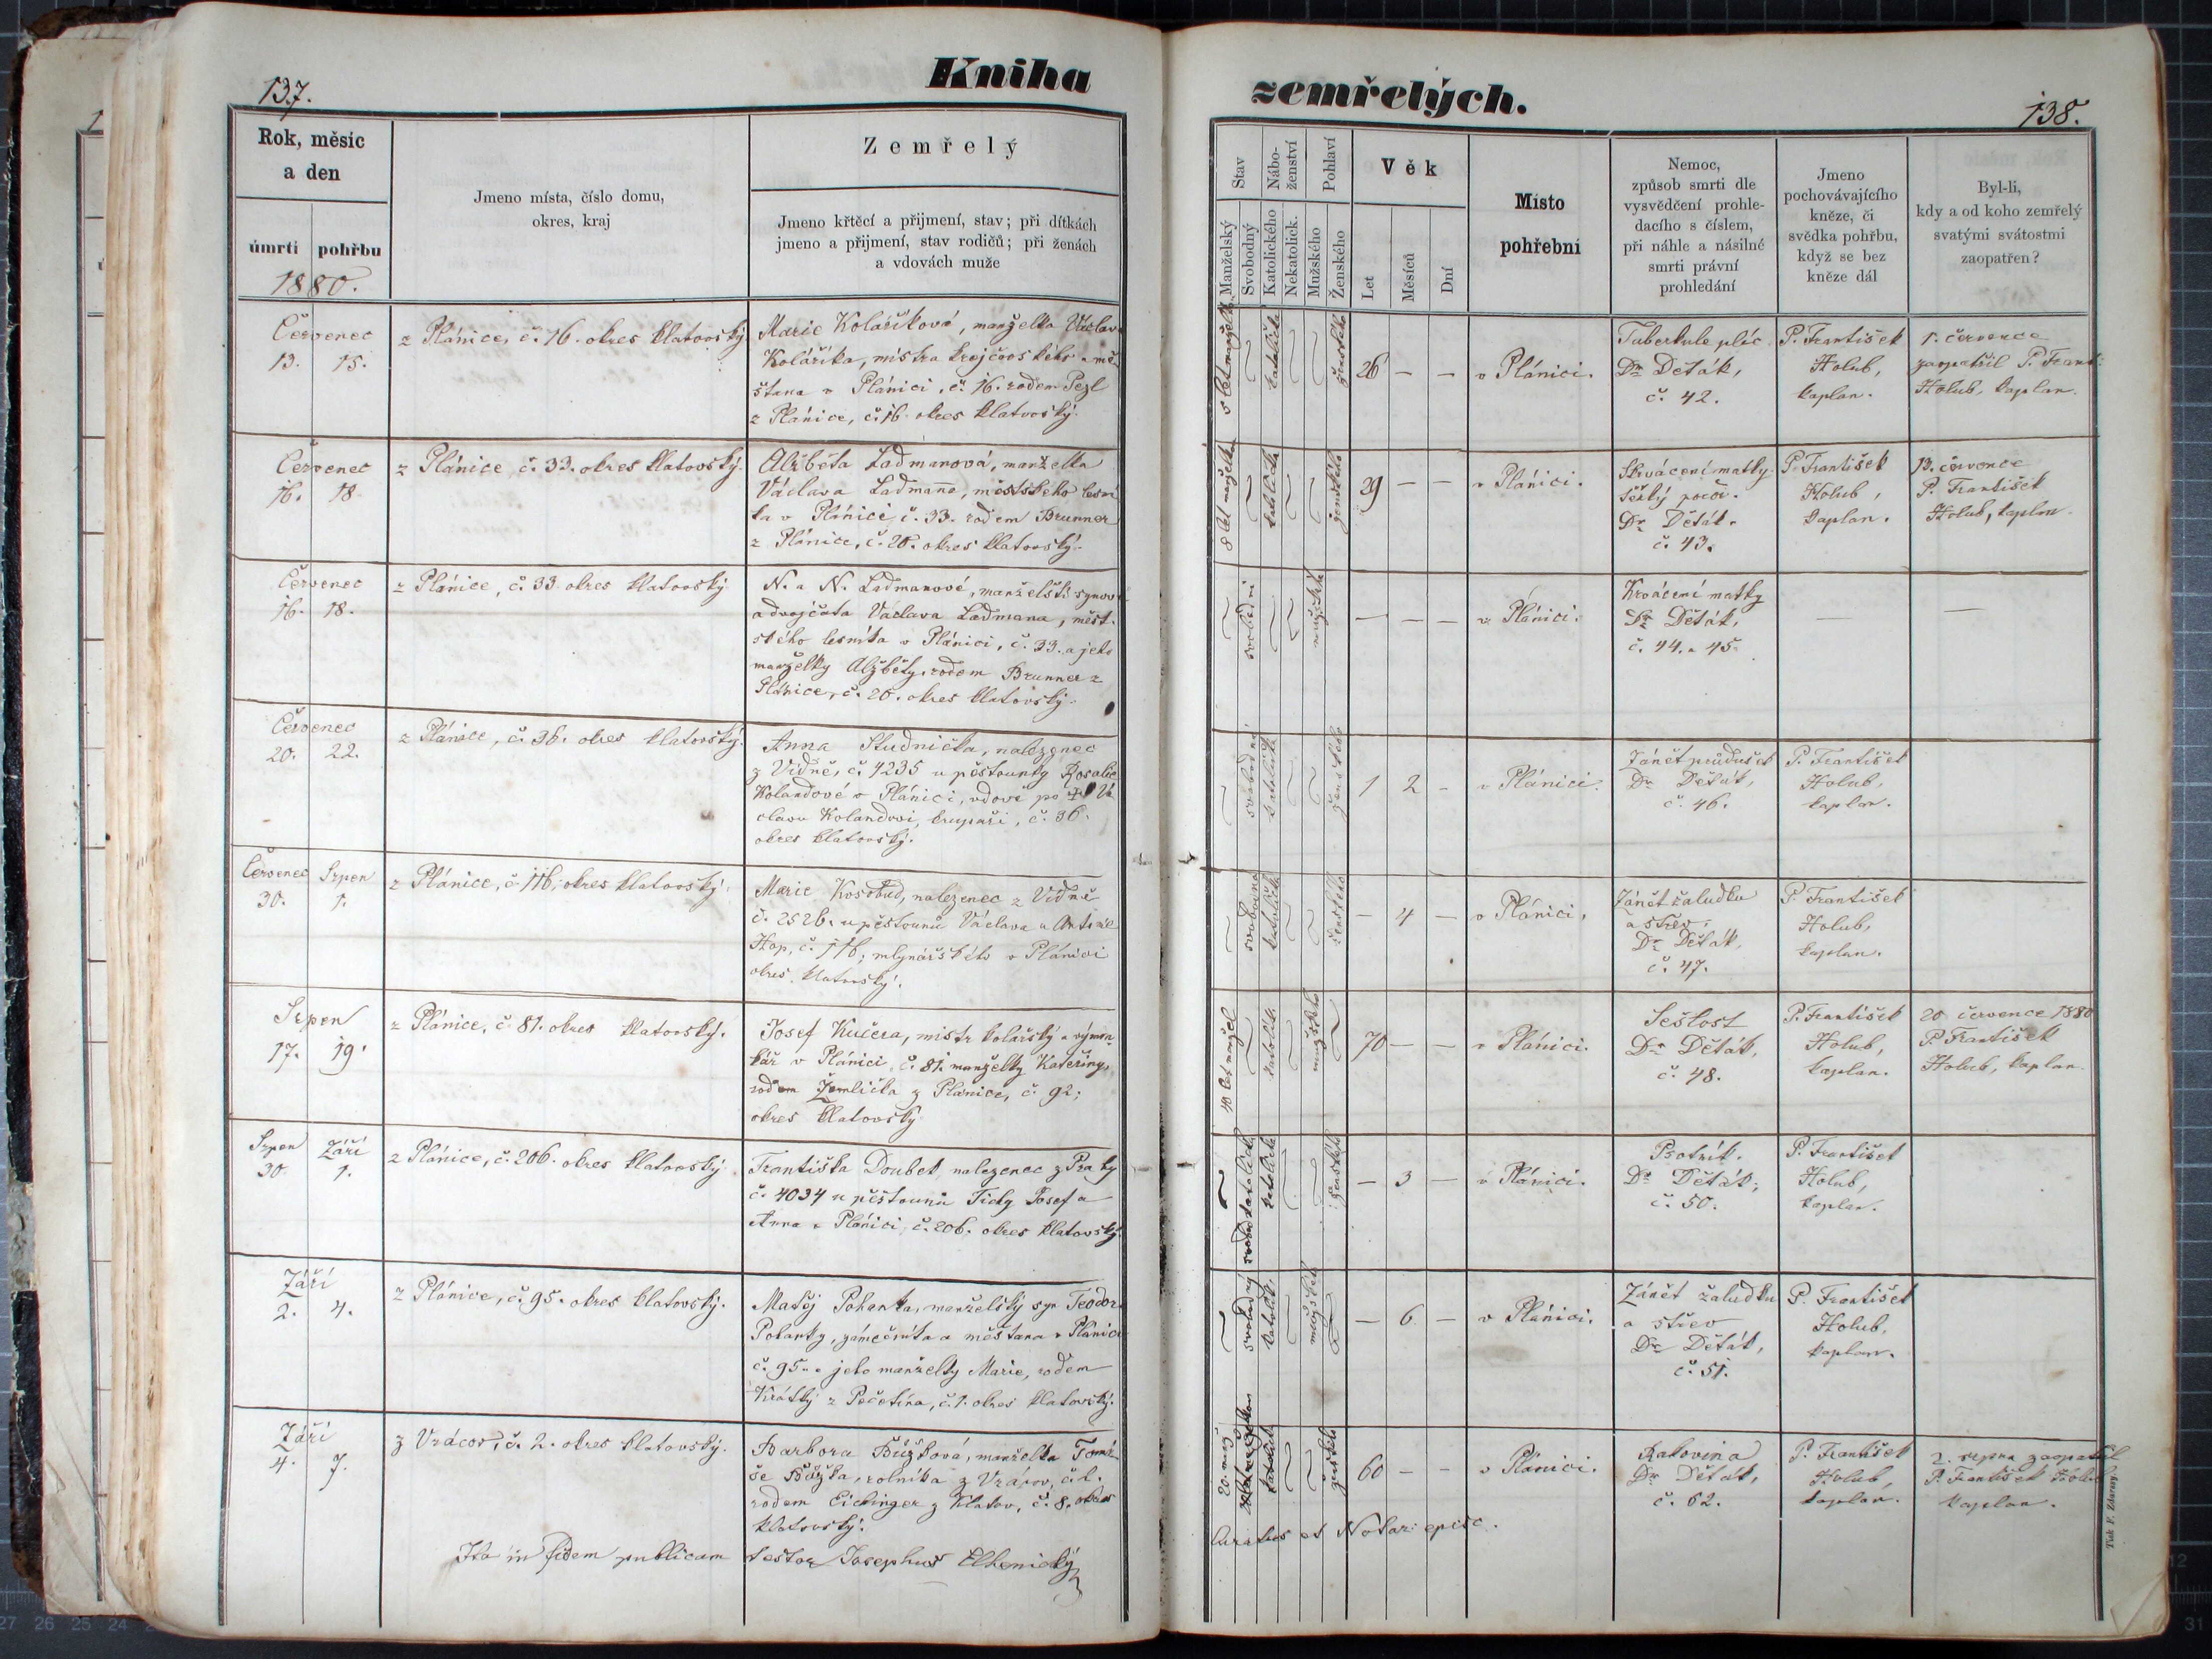 137.
Kniha
Rok, měsíc
a den
úmrtí pohřbu
1880.
Jmeno místa, číslo domu,
okres, kraj
Zemřelý
Jmeno křtěcí a přijmení, stav; při dítkách
jmeno a přijmení, stav rodičů; při ženách
a vdovách muže
Červenec
13. 15.
z Plánice, č. 16. okres klatovský
Marie Koláříková, manželka Václava
Koláříka, mistra krejčovského a mě-
šťana v Plánici, č. 16. rodem Pezl
z Plánice, č. 16. okres klatovský.
Červenec
16. 18.
z Plánice, č. 33. okres klatovský.
Alžběta Ladmanová, manželka
Václava Ladmana, městského lesní
ka v Plánici, č. 33. rodem Brunner
z Plánice, č. 20. okres klatovský.
Červenec
16. 18.
z Plánice, č. 33 okres klatovský
N. a N. Ladmanové, manželští synové
a dvojčata Václava Ladmana, měst-
ského lesníka v Plánici, č. 33. a jeho
manželky Alžběty, rodem Brunner z
Plánice, č. 20. okres klatovský.
Červenec
20. 22.
z Plánice, č. 36. okres klatovský.
Anna Studnička, nalezenec
z Vídně, č. 4235 u pěstounky Rosalie
Kolandové v Plánici, vdově po Vá
clavu Kolandovi, krupaři, č. 36.
okres klatovský.
Červenec Srpen
30. 1.
z Plánice, č. 116, okres klatovský.
Marie Kosobud, nalezenec z Vídně
č. 2526. u pěstounů Václava a Antonie
Hop, č. 116, mlynářského v Plánici
okres klatovský.
Srpen
17. 19.
z Plánice, č. 81. okres klatovský.
Josef Kučera, mistr kolářský a výmin-
kář v Plánici, č. 81. manželky Kateřiny,
rodem Žemlička z Plánice, č. 92;
okres klatovský.
Srpen Září
30. 1.
z Plánice, č. 206. okres klatovský
Františka Doubek, nalezenec z Prahy
č. 4034 u pěstounů Tichy Josef a
Anna v Plánici, č. 206. okres klatovský.
Září
2. 4.
z Plánice, č. 95. okres klatovský.
Matěj Pohanka, manželský syn Teodora
Pohanky, zámečníka a měšťana v Plánici
č. 95. a jeho manželky Marie, rodem
Krátký z Pečetína, č. 1. okres klatovský.
Září
4. 7.
z Vracov, č. 2. okres klatovský.
Barbora Bůžková, manželka Tomá-
še Bůžka, rolníka z Vracov, č. 2.
rodem Eichinger z Klatov, č. 8. okres
klatovský.
Ita in fidem publicam testor Josephus Elhenický
zemřelých.
138.
Stav
Manželský
Svobodný
Nábo-
ženství
Katolického
Nekatolick.
Pohlaví
Mužského
Ženského
Věk
Let
Měsíců
Dní
Místo
pohřební
Nemoc,
způsob smrti dle
vysvědčení prohle-
dacího s číslem,
při náhle a násilné
smrti právní
prohledání
Jmeno
pochovávajícího
kněze, či
svědka pohřbu,
když se bez
kněze dál
Byl-li,
kdy a od koho zemřelý
svatými svátostmi
zaopatřen?
5 let manželka
katolička
ženského
26 — —
v Plánici.
Tuberkule plic.
Dr Děták,
č. 42.
P. František
Holub,
kaplan.
1. července
zaopatřil P. Frant.
Holub, kaplan.
8 let manželka
katolička
ženského
29 — —
v Plánici.
Skrvácení matky
Těžký porod.
Dr Děták.
č. 43.
P. František
Holub,
kaplan.
13. července
P. František
Holub, kaplan.
svobodní
mužské
— — —
v Plánici.
Krvácení matky
Dr Děták,
č. 44. a 45.
—
—
svobodná
katolička
ženského
1 2 -
v Plánici.
Zánět průdušek
Dr Děták,
č. 46.
P. František
Holub,
kaplan.
svobodná
katolička
ženského
- 4 —
v Plánici.
Zánět žaludku
a střev.
Dr Děták,
č. 47.
P. František
Holub,
kaplan.
40 let manžel
katolík
mužského
70 — —
v Plánici.
Sešlost
Dr Děták,
č. 48.
P. František
Holub,
kaplan.
20 července 1880
P. František
Holub, kaplan.
katolička
ženského
— 3 —
v Plánici.
Psotník.
Dr Děták,
č. 50.
P. František
Holub,
kaplan.
svobodný
katolík
mužského
— 6 —
v Plánici.
Zánět žaludku
a střev
Dr Děták,
č. 51.
P. František
Holub,
kaplan.
katolička
ženského
60 — —
v Plánici.
Rakovina
Dr Děták,
č. 62.
P. František
Holub,
kaplan.
2. srpna zaopatřil
P. František Holub
kaplan.
Curatus et Notar. episc.
Tisk F. Zdarsy.